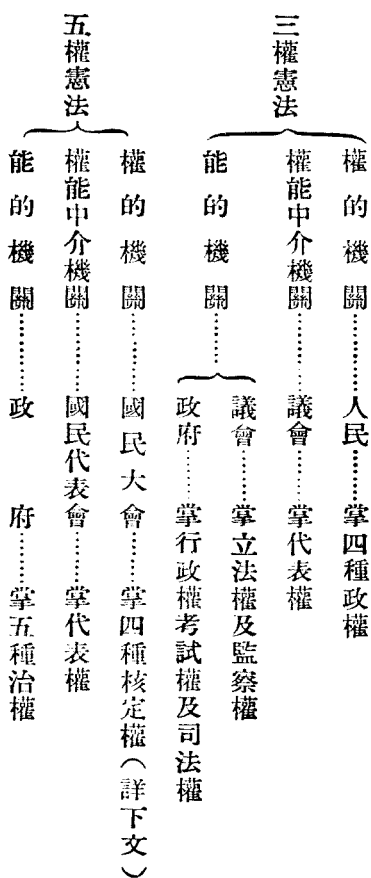 三權憲法
權的機關…………人民………掌四種政權
權能中介機關…………議會………掌代表權
能的機關………
議會………掌立法權及監察權
政府………掌行政權考試權及司法權
五權憲法
權的機關…………國民大會………掌四種核定權(詳下文)
權能中介機關…………國民代表會………掌代表權
能的機關…………政府………掌五種治權